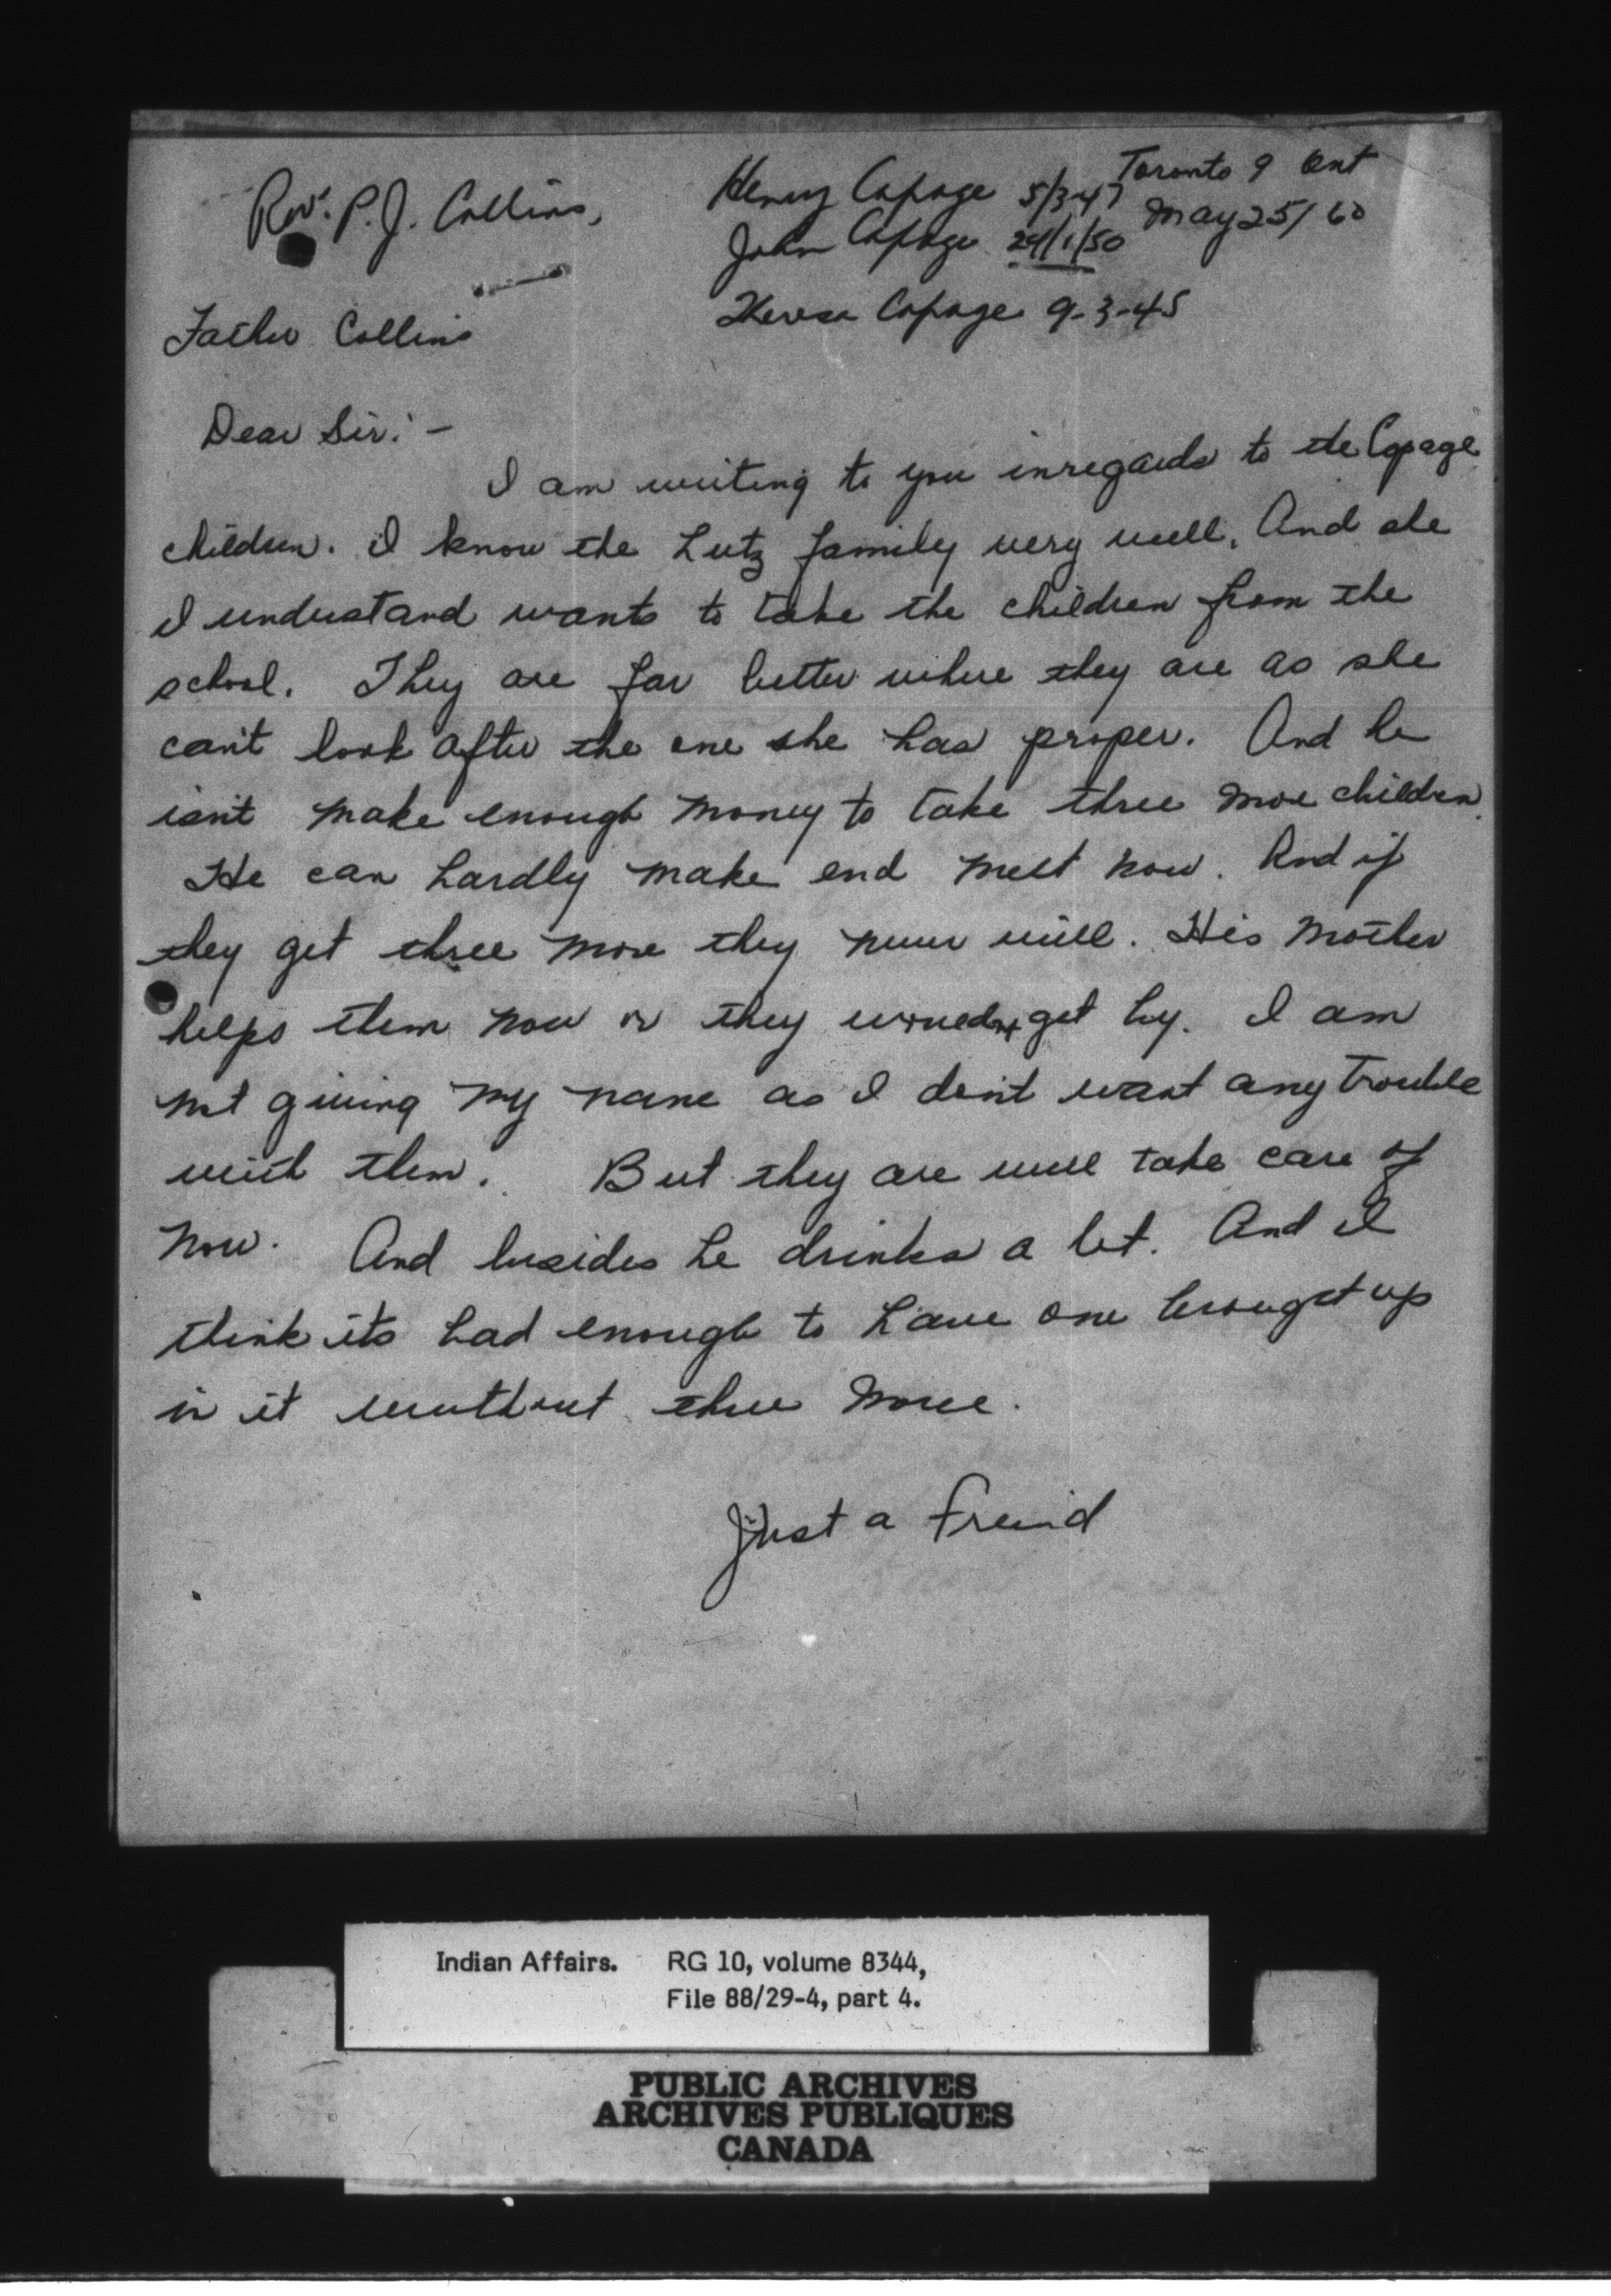 Rev. P. J. Collins,
Toronto 9 Ont
May 25/60
Henry Copage 5/3-47
John Copage 24/1/50
Theresa Copage 9-3-45
Father Collins
Dear Sir: -
I am writing to you inregards to the Copage
children. I know the Lutz family very well, And she
I understand wants to take the children from the
school. They are far better where they are as she
can't look after the one she has proper. And he
isn't make enough money to take three more children.
He can hardly make end meet now. And if
they get three more they never will. His Mother
helps them now or they would not get by. I am
not giving my name as I don't want any trouble
with them. But they are well take care of
now. And besides he drinks a lot. And I
think its bad enough to have one brought up
in it without three more.
Just a Freind
Indian Affairs. RG 10, volume 8344,
File 88/29-4, part 4.
PUBLIC ARCHIVES
ARCHIVES PUBLIQUES
CANADA